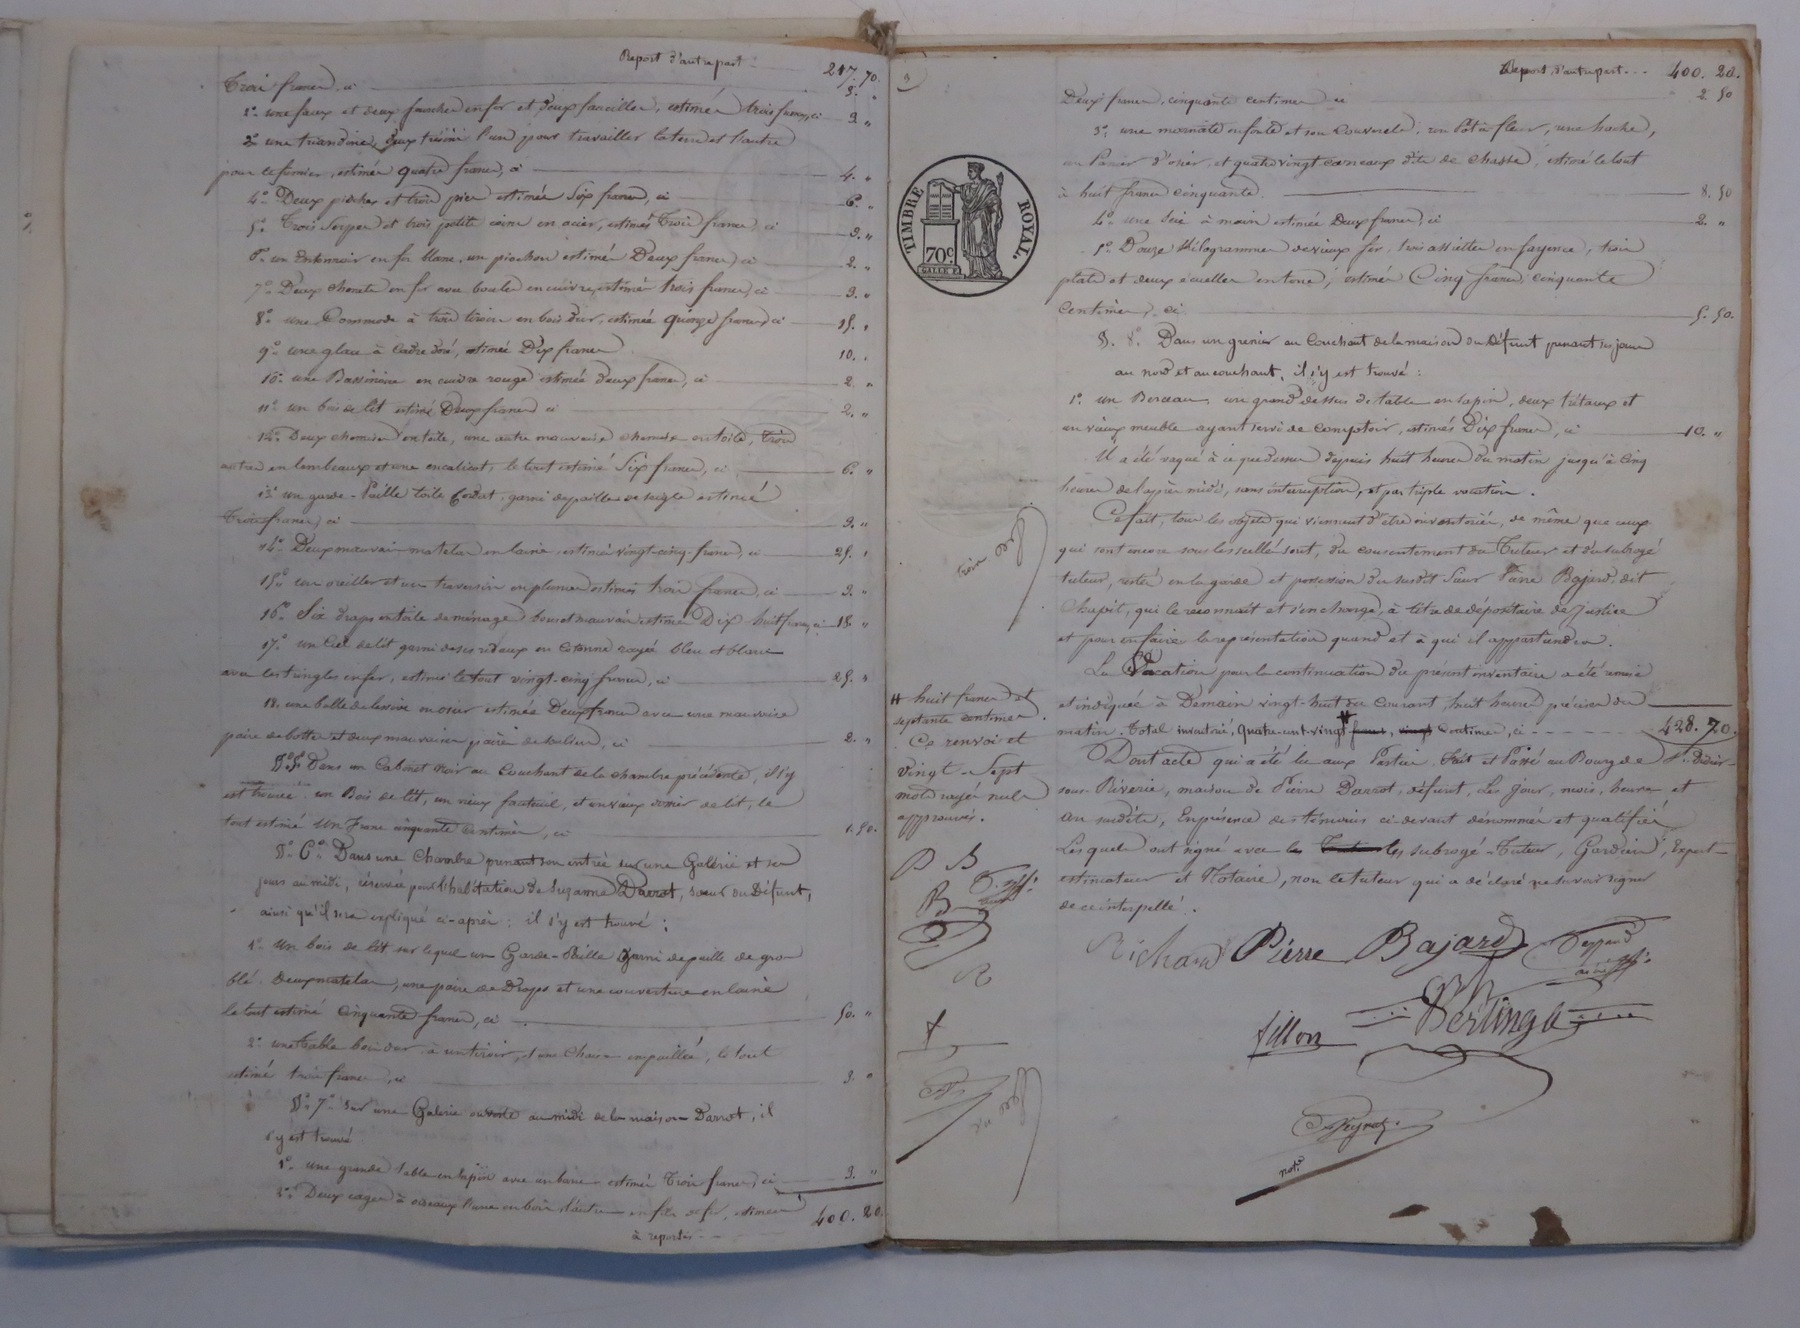 Report d'autre part 217. 70.
Trois francs, ci 3. "
1° une faux et deux fourches en fer et deux faucilles, estimés trois francs, ci 3. "
2° une triandine, deux tridents l'un pour travailler la terre et l'autre
pour le fumier, estimés quatre francs, ci 4. "
4° Deux pioches et trois pics estimés Six francs, ci 6. "
5° Trois Serpes et trois petits coins en acier, estimés Trois francs, ci 3. "
6° un Entonnoir en fer blanc, un piochon estimés Deux francs, ci 2. "
7° Deux chenets en fer avec boules en cuivre, estimés trois francs, ci 3. "
8° une Commode à trois tiroirs en bois dur, estimée quinze francs, ci 15. "
9° une glace à cadre doré, estimée Dix francs 10. "
10° une Bassinoire en cuivre rouge estimée deux francs, ci 2. "
11° un bois de lit estimé Deux francs ci 2. "
12° Deux chemises en toile, une autre mauvaise chemise en toile, trois
autres en lambeaux et une en calicot, le tout estimé Six francs, ci 6. "
13° un garde-Paille toile garni de paille de seigle estimé
Trois francs, ci 3. "
14° Deux mauvais matelas en laine, estimés vingt-cinq francs, ci 25. "
15° un oreiller et un traversin en plumes estimés trois francs, ci 3. "
16° Six draps en toile de ménage bons et mauvais estimés Dix huit francs, ci 18. "
17° un Ciel de lit garni de ses rideaux en cotonne rayée bleu et blanc
avec les tringles en fer, estimé le tout vingt-cinq francs, ci 25. "
18. une balle de lessive en osier estimée Deux francs avec une mauvaise
paire de bottes et deux mauvaises paires de souliers, ci 2. "
§. 5° Dans un Cabinet noir au Couchant de la chambre précédente, il s'y
est trouvé un Bois de lit, un vieux fauteuil, et un vieux dossier de lit, le
tout estimé Un Franc cinquante centimes, ci 1. 50.
§. 6° Dans une Chambre prenant son entrée sur une Galerie et ses
jours au midi, réservée pour l'habitation de Suzanne Darrot, sœur du Défunt,
ainsi qu'il sera expliqué ci-après; il s'y est trouvé:
1° Un bois de lit sur lequel un Garde-Paille garni de paille de gros
blé, deux matelas, une paire de Draps et une couverture en laine
le tout estimé Cinquante francs, ci 50. "
2° une Table bois dur à un tiroir, et une Chaise empaillée, le tout
estimé trois francs, ci 3. "
§. 7° Sur une Galerie ouverte au midi de la maison Darrot, il
s'y est trouvé
1° une grande table en sapin avec un banc estimés Trois francs, ci 3. "
2° Deux cages à oiseaux l'une en bois, l'autre en fil de fer, estimées
400. 20
à reporter
3
Report d'autre part... 400. 20.
Deux francs, cinquante centimes ci 2. 50
3° une marmite en fonte et son Couvercle, un Pot à fleur, une hache,
un Panier d'osier, et quatre vingt carreaux dits de chasse, estimé le tout
à huit francs cinquante. 8. 50
4° une Scie à main estimée Deux francs, ci 2. "
5° Douze Kilogrammes de vieux fer, trois assiettes en fayence, trois
plats et deux écuelles en terre, estimés Cinq francs cinquante
Centimes, ci 5. 50.
§. 8° Dans un grenier au Couchant de la maison du défunt prenant ses jours
au nord et au couchant, il s'y est trouvé:
1° un Berceau, un grand dessus de table en sapin, deux trétaux et
un vieux meuble ayant servi de Comptoir, estimés Dix francs, ci 10. "
Il a été vaqué à ce que dessus depuis huit heures du matin jusqu'à cinq
heures de l'après midi, sans interruption, et par triple vacation.
Ce fait, tous les objets qui viennent d'être inventoriés, de même que ceux
qui sont encore sous les scellés sont, du consentement du Tuteur et du subrogé
tuteur, restés en la garde et possession du susdit Sieur Pierre Bajard, dit
Chapit, qui le reconnaît et s'en charge, à titre de dépositaire de Justice
et pour en faire la représentation quand et à qui il appartiendra.
La Vacation pour la continuation du présent inventaire a été remise
et indiquée à Demain vingt-huit du Courant, huit heures précises du
matin. Total inventorié, quatre cent vingt # centimes, ci 428. 70.
Dont acte qui a été lu aux Parties. Fait et Passé au Bourg de St. Didier-
sous-Riverie, maison de Pierre Darrot, défunt, Les jour, mois, heures et
an susdits, En présence des témoins ci-devant dénommés et qualifiés
Lesquels ont signé avec les subrogé-Tuteur, Gardien, Expert
estimateur et Notaire, non le tuteur qui a déclaré ne savoir signer
de ce interpellé.
# huit francs et
septante centimes.
Ce renvoi et
vingt-sept
mots rayés nuls
approuvés.
P B
B
R
f
TIMBRE ROYAL.
70c.
Richard Pierre Bajard
fillon Berlinga
Peyrot
not.e